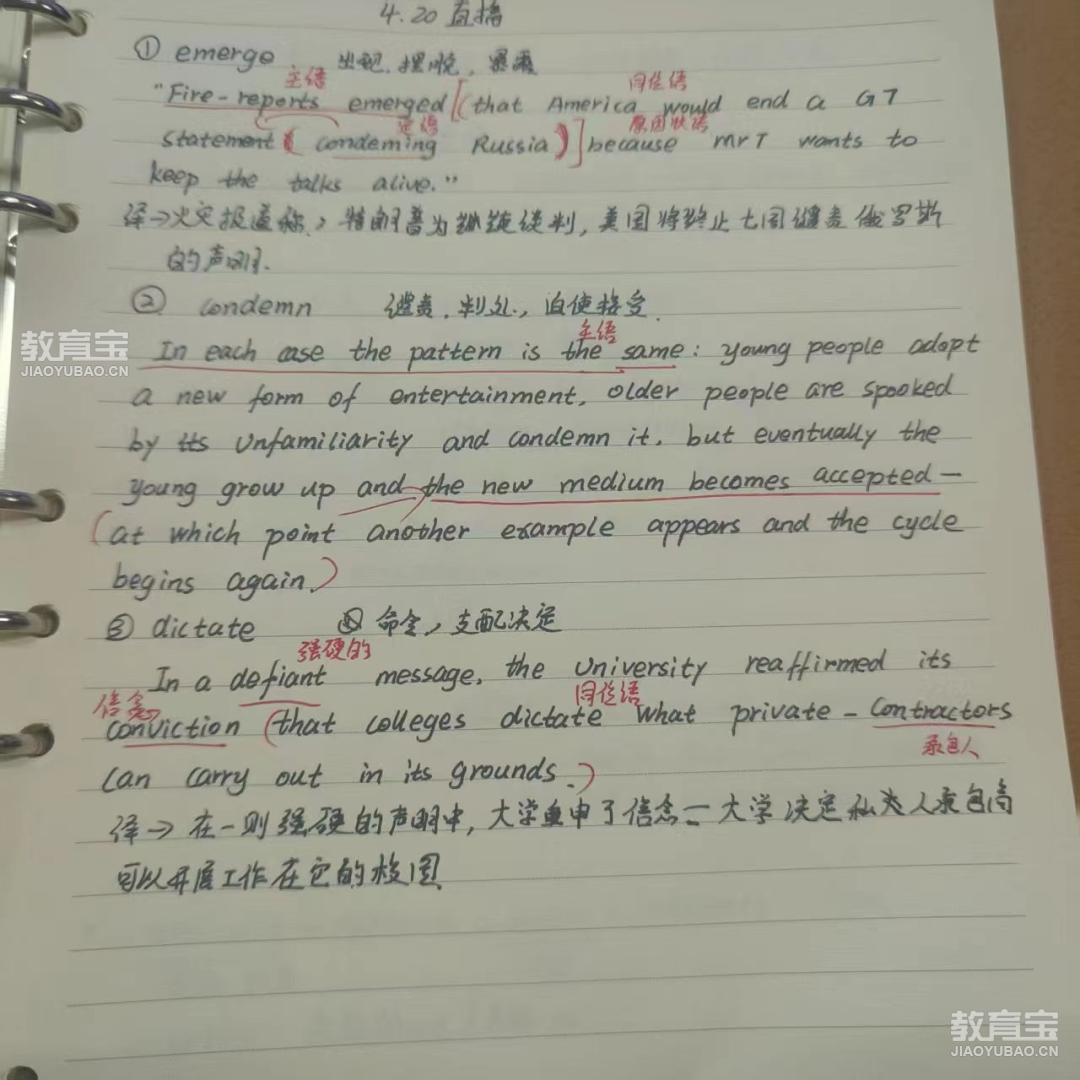 4.20 直播
① emerge 出现、摆脱,暴露
主语 同位语
"Fire-reports emerged [(that America would end a G7
定语 原因状语
statement ( condeming Russia)] because Mr T wants to
keep the talks alive."
译→火灾报道称,特朗普为 谈判,美国将终止七国谴责俄罗斯
的声明.
② condemn 谴责、判处、迫使接受.
主语
In each case the pattern is the same: young people adopt
a new form of entertainment, older people are spooked
by its unfamiliarity and condemn it, but eventually the
young grow up and the new medium becomes accepted—
(at which point another example appears and the cycle
begins again.)
③ dictate 命令,支配决定
强硬的
In a defiant message, the University reaffirmed its
信念 同位语
conviction (that colleges dictate what private-contractors
承包人
can carry out in its grounds.)
译→ 在一则强硬的声明中,大学重申了信念—大学决定私人承包商
可以开展工作在它的校园
教育宝
JIAOYUBAO.CN
教育宝
JIAOYUBAO.CN